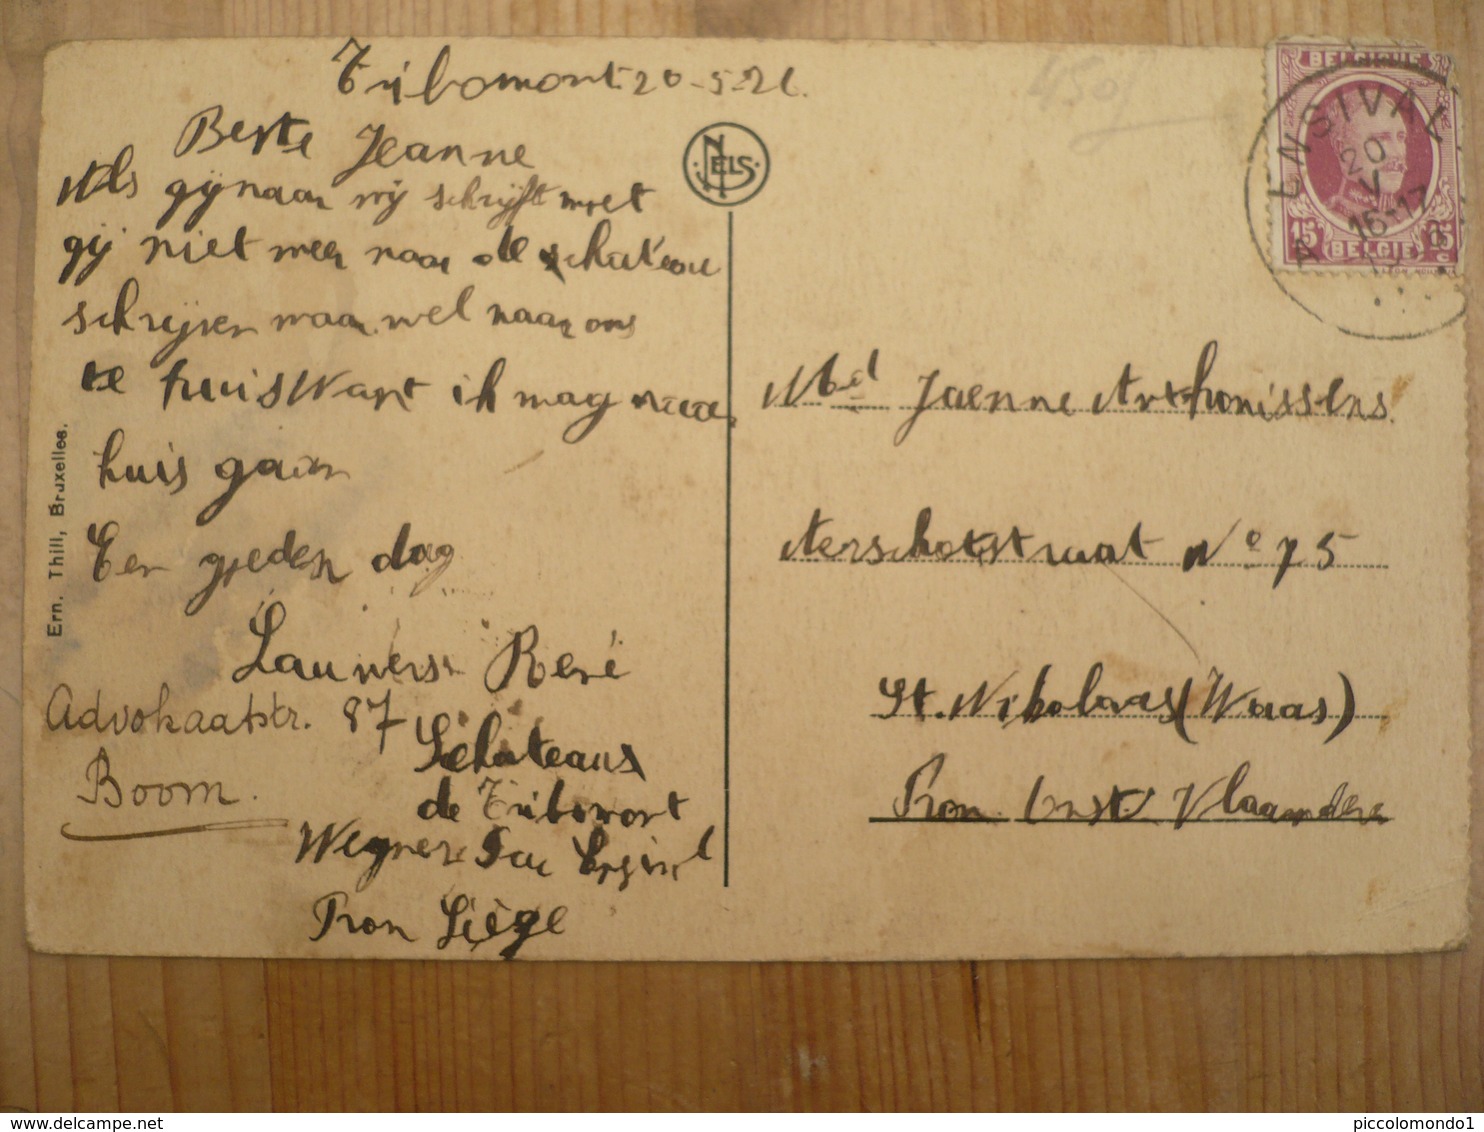 Tribomont 20-5-26.
Beste Jeanne
Als gij naar mij schrijft moet
gij niet meer naar de chateau
schrijven maar wel naar ons
te huis Want ik mag naar
huis gaan
Een goeden dag
Lauwerss René
Advokaatstr. 87
Boom.
Chateaus
de Tribomont
Wegnez
Prov Liège
Ern. Thill, Bruxelles.
NELS
450f
BELGIQUE
15 15
BELGIE
ENSIVAL
20
V
16-17
A
Jaenne Anthonissens
Aerschotstraat No 75
St. Nikolaas (Waas)
Prov Oost Vlaandere
piccolomondo1